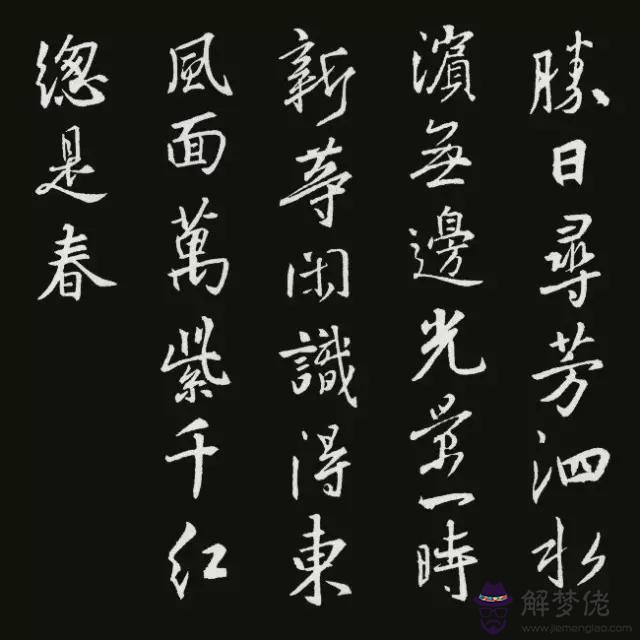 勝日尋芳泗水
濵無邊光景一時
新等閑識得東
風面萬紫千红
總是春
解梦佬
www.jiemenglao.com